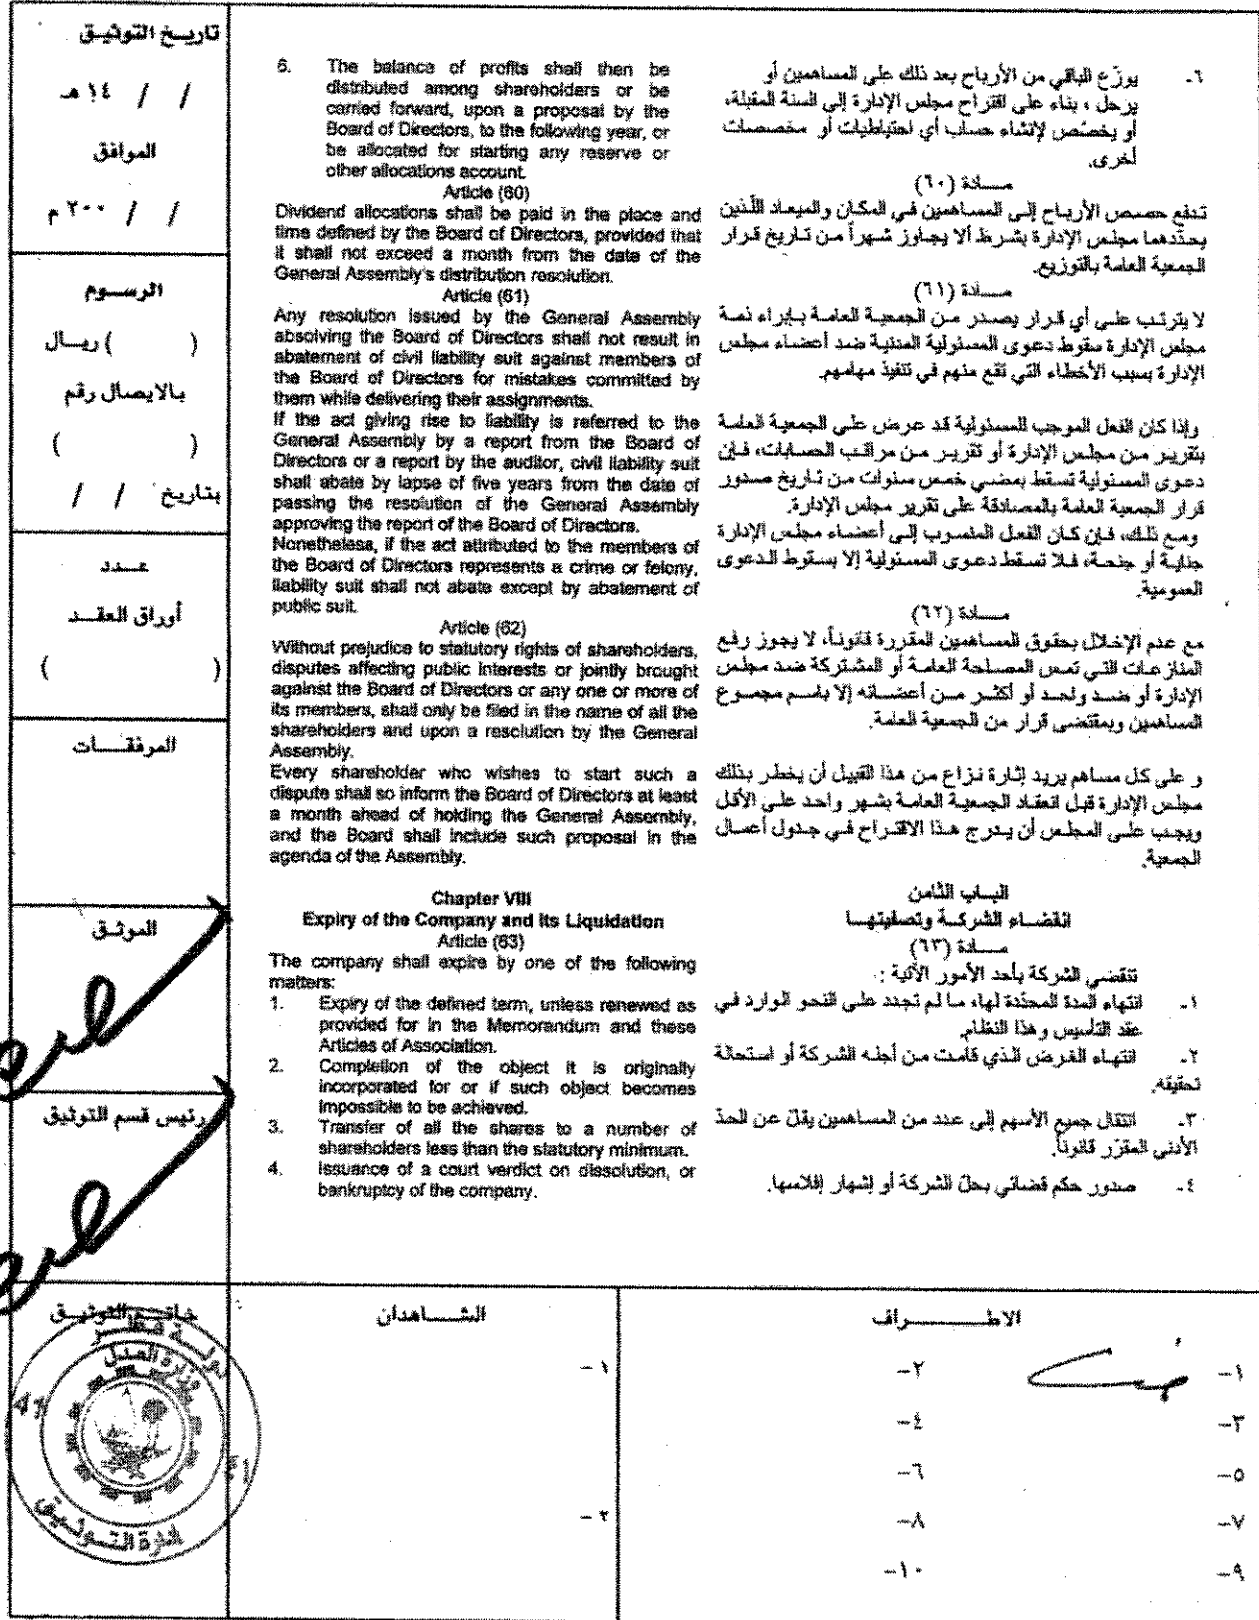 تاريخ التوثيق
/ / ١٤ هـ
الموافق
/ / ٢٠٠ م
الرســوم
( ) ريــال
بالايصال رقم
( )
بتاريخ / /
عــدد
أوراق العقــد
( )
المرفقــــات
الموثـق
رئيس قسم التوثيق
6. The balance of profits shall then be
distributed among shareholders or be
carried forward, upon a proposal by the
Board of Directors, to the following year, or
be allocated for starting any reserve or
other allocations account.
Article (60)
Dividend allocations shall be paid in the place and
time defined by the Board of Directors, provided that
it shall not exceed a month from the date of the
General Assembly's distribution resolution.
Article (61)
Any resolution issued by the General Assembly
absolving the Board of Directors shall not result in
abatement of civil liability suit against members of
the Board of Directors for mistakes committed by
them while delivering their assignments.
If the act giving rise to liability is referred to the
General Assembly by a report from the Board of
Directors or a report by the auditor, civil liability suit
shall abate by lapse of five years from the date of
passing the resolution of the General Assembly
approving the report of the Board of Directors.
Nonetheless, if the act attributed to the members of
the Board of Directors represents a crime or felony,
liability suit shall not abate except by abatement of
public suit.
Article (62)
Without prejudice to statutory rights of shareholders,
disputes affecting public interests or jointly brought
against the Board of Directors or any one or more of
its members, shall only be filed in the name of all the
shareholders and upon a resolution by the General
Assembly.
Every shareholder who wishes to start such a
dispute shall so inform the Board of Directors at least
a month ahead of holding the General Assembly,
and the Board shall include such proposal in the
agenda of the Assembly.
Chapter VIII
Expiry of the Company and its Liquidation
Article (63)
The company shall expire by one of the following
matters:
1. Expiry of the defined term, unless renewed as
provided for in the Memorandum and these
Articles of Association.
2. Completion of the object it is originally
incorporated for or if such object becomes
impossible to be achieved.
3. Transfer of all the shares to a number of
shareholders less than the statutory minimum.
4. Issuance of a court verdict on dissolution, or
bankruptcy of the company.
٦- يوزّع الباقي من الأرباح بعد ذلك على المساهمين أو
يرحل ، بناء على اقتراح مجلس الإدارة إلى السنة المقبلة،
أو يخصّص لإنشاء حساب أي احتياطيات أو مخصصات
أخرى.
مــــادة (٦٠)
تدفع حصص الأرباح إلى المساهمين في المكان والميعاد اللّذين
يحدّدهما مجلس الإدارة بشرط ألا يجاوز شهراً من تاريخ قرار
الجمعية العامة بالتوزيع.
مــــادة (٦١)
لا يترتب على أي قرار يصدر من الجمعية العامة بإبراء ذمة
مجلس الإدارة سقوط دعوى المسئولية المدنية ضد أعضاء مجلس
الإدارة بسبب الأخطاء التي تقع منهم في تنفيذ مهامهم.
وإذا كان الفعل الموجب للمسئولية قد عرض على الجمعية العامة
بتقرير من مجلس الإدارة أو تقرير من مراقب الحسابات، فإن
دعوى المسئولية تسقط بمضي خمس سنوات من تاريخ صدور
قرار الجمعية العامة بالمصادقة على تقرير مجلس الإدارة.
ومع ذلك، فإن كان الفعل المنسوب إلى أعضاء مجلس الإدارة
جناية أو جنحة، فلا تسقط دعوى المسئولية إلا بسقوط الدعوى
العمومية.
مــــادة (٦٢)
مع عدم الإخلال بحقوق المساهمين المقررة قانوناً، لا يجوز رفع
المنازعات التي تمس المصلحة العامة أو المشتركة ضد مجلس
الإدارة أو ضد واحد أو أكثر من أعضائه إلا باسم مجموع
المساهمين وبمقتضى قرار من الجمعية العامة.
و على كل مساهم يريد إثارة نزاع من هذا القبيل أن يخطر بذلك
مجلس الإدارة قبل انعقاد الجمعية العامة بشهر واحد على الأقل
ويجب على المجلس أن يدرج هذا الاقتراح في جدول أعمال
الجمعية.
البــاب الثامن
انقضـاء الشركــة وتصفيتهــا
مــــادة (٦٣)
تنقضي الشركة بأحد الأمور الآتية :
١- انتهاء المدة المحدّدة لها، ما لم تجدد على النحو الوارد في
عقد التأسيس وهذا النظام.
٢- انتهاء الغرض الذي قامت من أجله الشركة أو استحالة
تحقيقه.
٣- انتقال جميع الأسهم إلى عدد من المساهمين يقلّ عن الحدّ
الأدنى المقرّر قانوناً.
٤- صدور حكم قضائي بحلّ الشركة أو إشهار إفلاسها.
الاطـــــــراف
١-
٢-
٣-
٤-
٥-
٦-
٧-
٨-
٩-
١٠-
الشــــاهدان
١ -
٢ -
خاتــم التوثيــق
دولــة قطــر
وزارة العدل
إدارة التــوثيــق